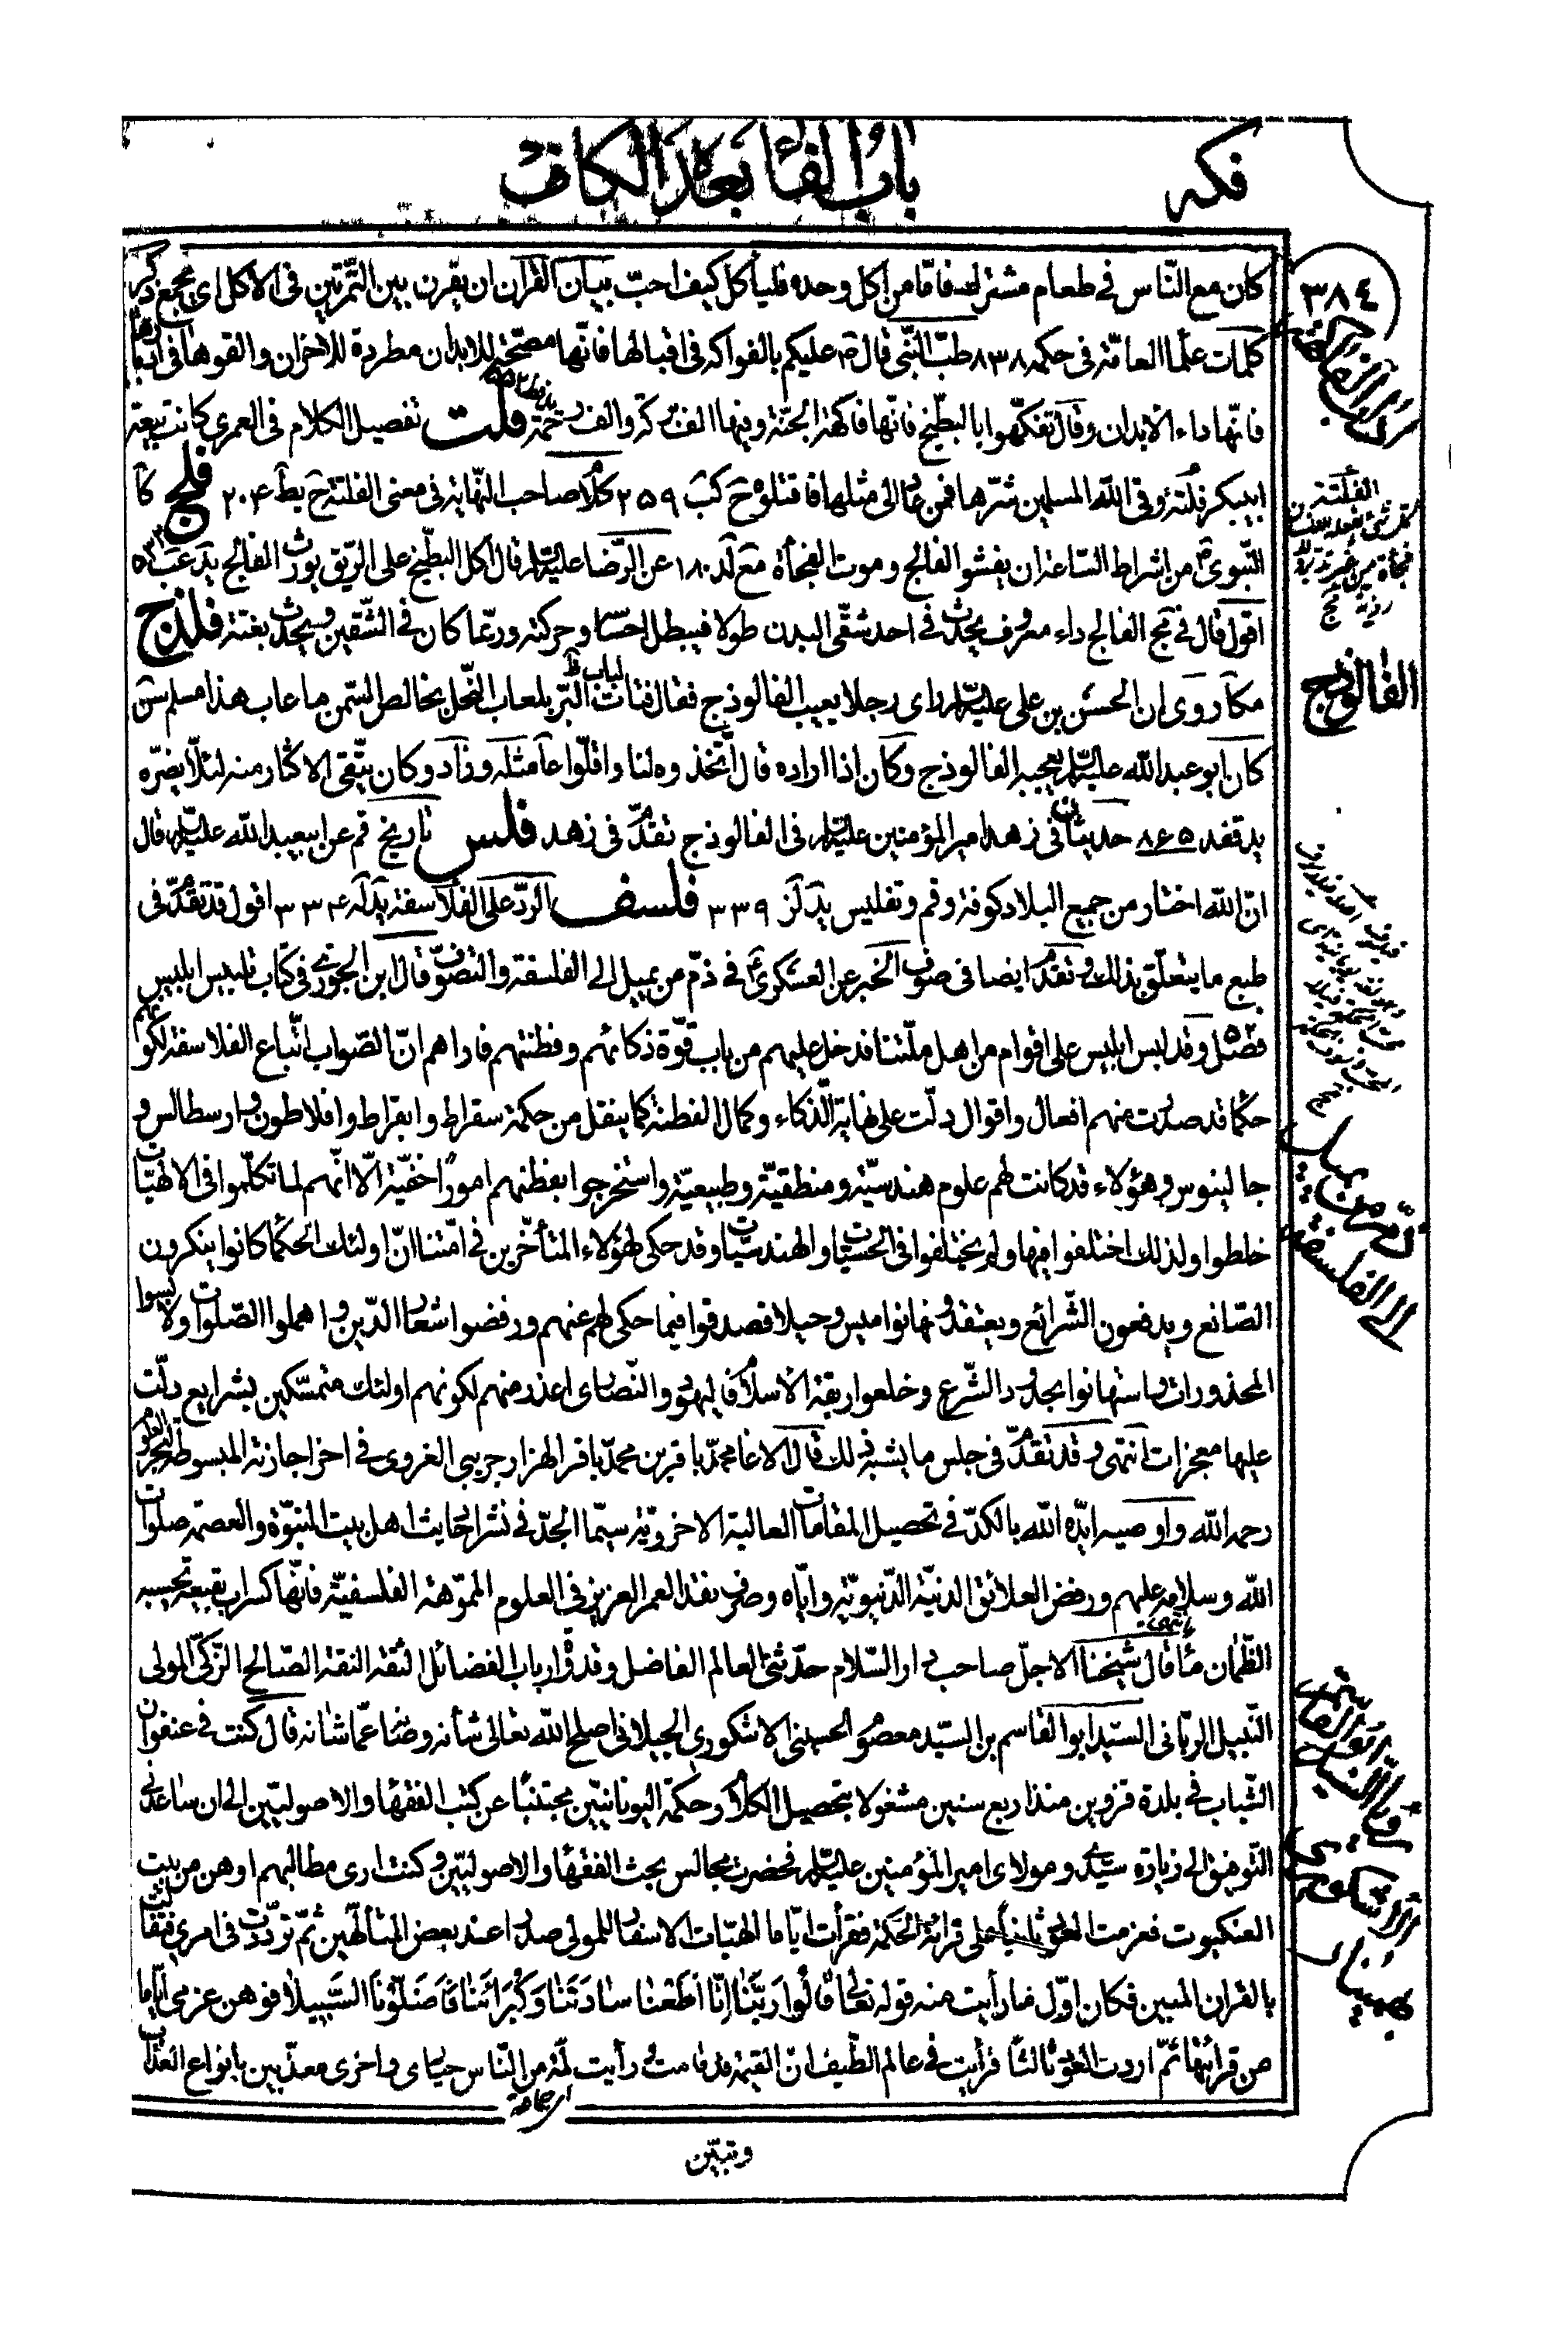 فكه
باب الفاء بعد الكاف
٣٨٤
كان مع الناس في طعام مشترك فامّا من اكل وحده فليأكل كيف احبّ بيان القران ان يقرن بين التّمرتين في الاكل اي يجمع ذكر
كلمات علماء العامّة في حكمه ٨٣٨ طبّ النّبي قال ص عليكم بالفواكه في اقبالها فانّها مصحّة للابدان مطردة للاحزان والقوها في ادبارها
فانّها داء الابدان وقال تفكّهوا بالبطّيخ فانّها فاكهة الجنّة وفيها الف بركة والف رحمة فلت تفصيل الكلام في العمري كانت بيعة
ابيبكر فلتة وقى اللّه المسلمين شرّها فمن عاد الى مثلها فاقتلوه ح كب ٢٥٩ كلام صاحب النّهاية في معنى الفلتة ح يط ٢٠٤ فلج كا
النّبوي ص من اشراط السّاعة ان يفشو الفالج وموت الفجأة مع لد ١٨٠ عن الرّضا عليه السلم قال اكل البطّيخ على الرّيق يورث الفالج يد عب ٥٣٣
اقول قال في مج الفالج داء معروف يحدث في احد شقّي البدن طولا فيبطل احساسه وحركته وربّما كان في الشّقين ويحدث بغتة فلذج
مكا روى ان الحسن بن علي عليه السلم راى رجلا يعيب الفالوذج فقال فتات البّر بلعاب النّحل بخالص السّمن ما عاب هذا مسلم سن
كان ابو عبد اللّه عليه السلم يعجبه الفالوذج وكان اذا اراده قال اتّخذوه لنا واقلّوا عا مثله وزاد وكان يتّقي الاكثار منه لئلّا يضرّه
يد قفد ٨٦٥ حديثان في زهد امير المؤمنين عليه السلم في الفالوذج تقدّم في زهد فلس تاريخ قم عن ابيعبد اللّه عليه السلم قال
انّ اللّه اختار من جميع البلاد كوفة وقم وتفليس يد لز ٣٣٩ فلسف الردّ على الفلاسفة يد له ٣٣٤ اقول قد تقدّم في
طبع ما يتعلّق بذلك وتقدّم ايضا في صوف الخبر عن العسكري ع في ذمّ من يميل الى الفلسفة والتصوّف قال ابن الجوزي في كتاب تلبيس ابليس
فصل وقد لبس ابليس على اقوام من اهل ملّتنا فدخل عليهم من باب قوّة ذكائهم وفطنتهم فاراهم انّ الصّواب اتّباع الفلاسفة لكونهم
حكماء قد صدرت منهم افعال واقوال دلّت على نهاية الذّكاء وكمال الفطنة كما ينقل من حكمة سقراط وابقراط وافلاطون وارسطالس و
جالينوس وهؤلاء قد كانت لهم علوم هندسيّة ومنطقيّة وطبيعيّة واستخرجوا بفطنهم امورًا خفيّة الّا انّهم لما تكلّموا في الالهيّات
خلطوا ولذلك اختلفوا فيها ولم يختلفوا في الحسيّات والهندسيّات وقد حكى لهؤلاء المتأخّرين في امّتنا انّ اولئك الحكماء كانوا ينكرون
الصّانع ويدفعون الشّرائع ويعتقدونها نواميس وحيلا فصدقوا فيما حكى لهم عنهم ورفضوا شعار الدّين واهملوا الصّلوات ولابسوا
المحذورات واستهانوا بحدود الشّرع وخلعوا ربقة الاسلام فاليهود والنّصارى اعذر منهم لكونهم اولئك متمسّكين بشرايع دلّت
عليها معجزات انتهى وقد تقدّم في جلس ما يشبه ذلك قال الاغا محمّد باقر بن محمّد باقر الهزار جريبي الغروي في اخر اجازته المبسوطة لبحر العلوم
رحمه اللّه واوصيه ايّده اللّه بالكدّ في تحصيل المقامات العالية الاخرويّة سيّما الجدّ في نشر احاديث اهل بيت النبوّة والعصمة صلوات
اللّه وسلامه عليهم ورفض العلائق الدنيّة الدّنيويّة وايّاه وصرف نقد العمر العزيز في العلوم المموّهة الفلسفيّة فانّها كسراب بقيعة يحسبه
الظّمان ماء انتهى قال شيخنا الاجلّ صاحب دار السّلام حدّثني العالم الفاضل وقدوة ارباب الفضائل الثقة النقة الصّالح الزّكيّ المولى
النّبيل الربّاني السيّد ابو القاسم بن السيّد معصوم الحسيني الاشكوري الجيلاني اصلح اللّه تعالى شأنه وصانه عمّا شانه قال كنت في عنفوان
الشّباب في بلدة قزوين منذ اربع سنين مشغولا بتحصيل الكلام وحكمة اليونانيّين مجتنبًا عن كتب الفقهاء والاصوليّين الى ان ساعدني
التّوفيق الى زيارة سيّدي ومولاي امير المؤمنين عليه السلم فحضرت مجالس بحث الفقهاء والاصوليّين وكنت ارى مطالبهم اوهن من بيت
العنكبوت فعزمت العود ثانيا على قرائة الحكمة فقرأت ايّاما الهيّات الاسفار للمولى صدرا عند بعض المتألّهين ثمّ تردّدت في امري فتفألت
بالقران المبين فكان اوّل ما رأيت منه قوله تعالى قالُوا رَبَّنا اِنّا اَطَعْنا سادَتَنا وَكُبَرائَنا فَاَضَلّوُنَا السَّبيلا فوهن عزمي ايّاما
من قرائتها ثمّ اردت العود ثالثًا فرأيت في عالم الطّيف انّ القيمة قد قامت ورأيت لمّة من النّاس حيارى واخرى معذّبين بانواع العذاب
اي جماعة
وتبيّن
الفلتة
فجأة من غير تدبّر
الفالوذج
ذمّ من يميل
الى الفلسفة